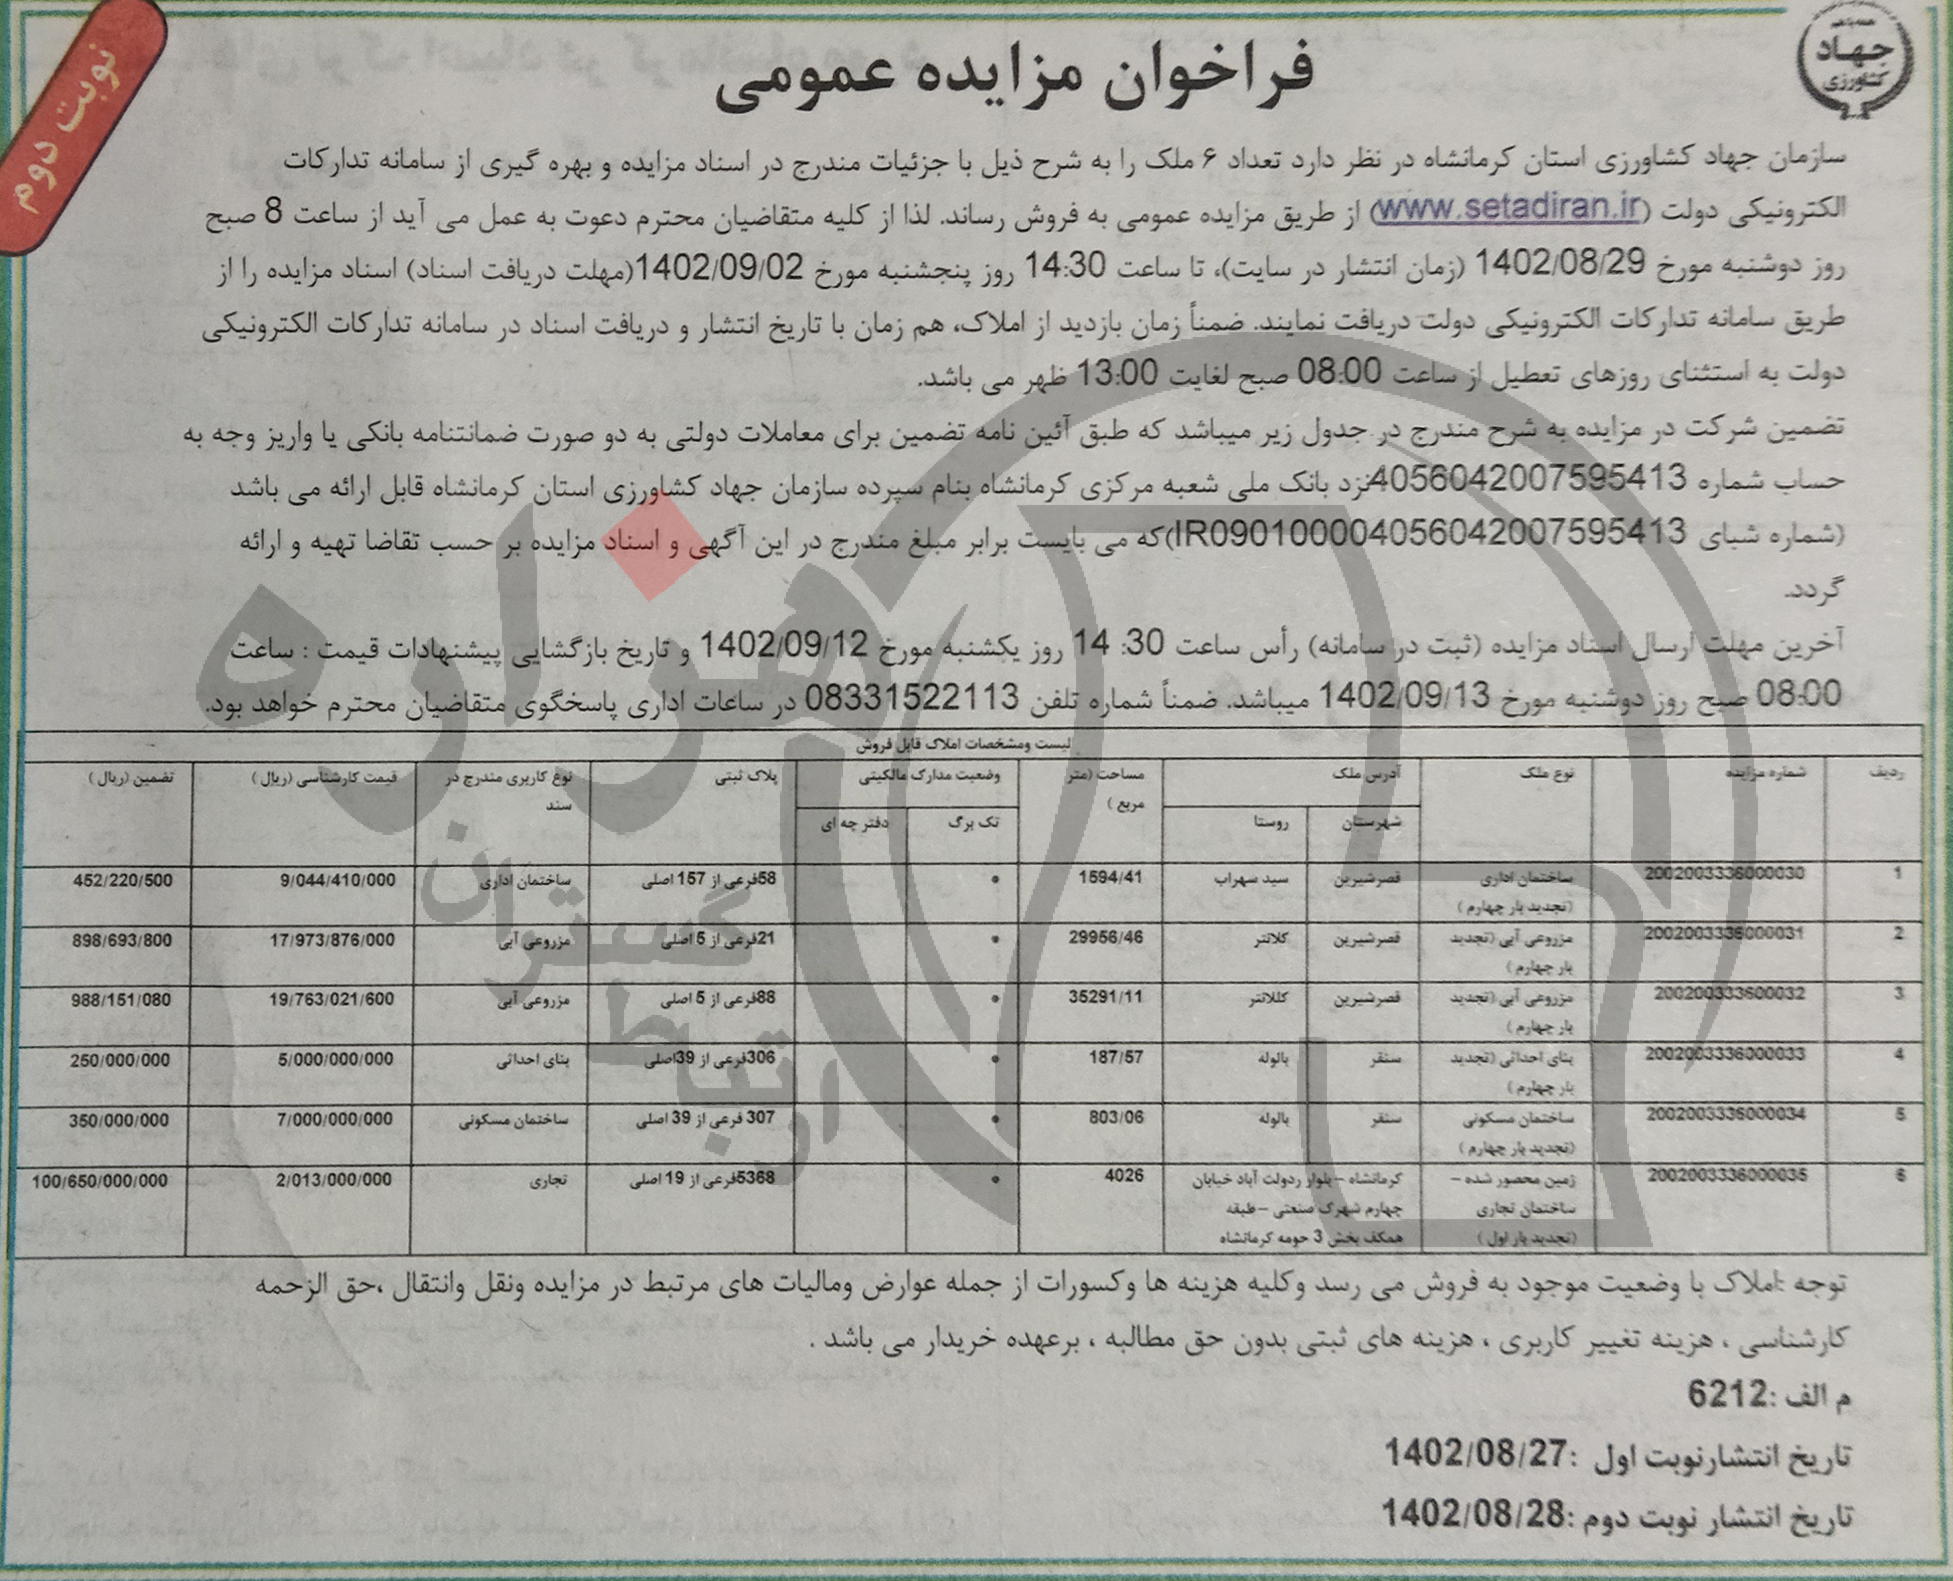 همه با هم
جهاد
کشاورزی
نوبت دوم
فراخوان مزایده عمومی
سازمان جهاد کشاورزی استان کرمانشاه در نظر دارد تعداد ۶ ملک را به شرح ذیل با جزئیات مندرج در اسناد مزایده و بهره گیری از سامانه تدارکات
الکترونیکی دولت (www.setadiran.ir) از طریق مزایده عمومی به فروش رساند. لذا از کلیه متقاضیان محترم دعوت به عمل می آید از ساعت 8 صبح
روز دوشنبه مورخ 1402/08/29 (زمان انتشار در سایت)، تا ساعت 14:30 روز پنجشنبه مورخ 1402/09/02(مهلت دریافت اسناد) اسناد مزایده را از
طریق سامانه تدارکات الکترونیکی دولت دریافت نمایند. ضمناً زمان بازدید از املاک، هم زمان با تاریخ انتشار و دریافت اسناد در سامانه تدارکات الکترونیکی
دولت به استثنای روزهای تعطیل از ساعت 08:00 صبح لغایت 13:00 ظهر می باشد.
تضمین شرکت در مزایده به شرح مندرج در جدول زیر میباشد که طبق آئین نامه تضمین برای معاملات دولتی به دو صورت ضمانتنامه بانکی یا واریز وجه به
حساب شماره 4056042007595413نزد بانک ملی شعبه مرکزی کرمانشاه بنام سپرده سازمان جهاد کشاورزی استان کرمانشاه قابل ارائه می باشد
(شماره شبای IR090100004056042007595413)که می بایست برابر مبلغ مندرج در این آگهی و اسناد مزایده بر حسب تقاضا تهیه و ارائه
گردد.
آخرین مهلت ارسال اسناد مزایده (ثبت در سامانه) رأس ساعت 14:30 روز یکشنبه مورخ 1402/09/12 و تاریخ بازگشایی پیشنهادات قیمت : ساعت
08:00 صبح روز دوشنبه مورخ 1402/09/13 میباشد. ضمناً شماره تلفن 08331522113 در ساعات اداری پاسخگوی متقاضیان محترم خواهد بود.
لیست ومشخصات املاک قابل فروش
ردیف شماره مزایده نوع ملک آدرس ملک مساحت (متر وضعیت مدارک مالکیتی پلاک ثبتی نوع کاربری مندرج در قیمت کارشناسی (ریال) تضمین (ریال)
مربع) سند
شهرستان روستا تک برگ دفتر چه ای
1 2002003336000030 ساختمان اداری قصرشیرین سید سهراب 1594/41 • 58فرعی از 157 اصلی ساختمان اداری 9/044/410/000 452/220/500
(تجدید بار چهارم)
2 2002003336000031 مزروعی آبی (تجدید قصرشیرین کلانتر 29956/46 • 21فرعی از 5 اصلی مزروعی آبی 17/973/876/000 898/693/800
بار چهارم)
3 2002003336000032 مزروعی آبی (تجدید قصرشیرین کللانتر 35291/11 • 88فرعی از 5 اصلی مزروعی آبی 19/763/021/600 988/151/080
بار چهارم)
4 2002003336000033 بنای احداثی (تجدید سنقر بالوله 187/57 • 306فرعی از 39اصلی بنای احداثی 5/000/000/000 250/000/000
بار چهارم)
5 2002003336000034 ساختمان مسکونی سنقر بالوله 803/06 • 307 فرعی از 39 اصلی ساختمان مسکونی 7/000/000/000 350/000/000
(تجدید بار چهارم)
6 2002003336000035 زمین محصور شده – کرمانشاه –بلوار ردولت آباد خیابان 4026 • 5368فرعی از 19 اصلی تجاری 2/013/000/000 100/650/000/000
ساختمان تجاری چهارم شهرک صنعتی –طبقه
(تجدید بار اول) همکف بخش 3 حومه کرمانشاه
توجه :املاک با وضعیت موجود به فروش می رسد وکلیه هزینه ها وکسورات از جمله عوارض ومالیات های مرتبط در مزایده ونقل وانتقال ،حق الزحمه
کارشناسی ، هزینه تغییر کاربری ، هزینه های ثبتی بدون حق مطالبه ، برعهده خریدار می باشد .
م الف :6212
تاریخ انتشارنوبت اول :1402/08/27
تاریخ انتشار نوبت دوم :1402/08/28
هزاره
ارتباط گستران